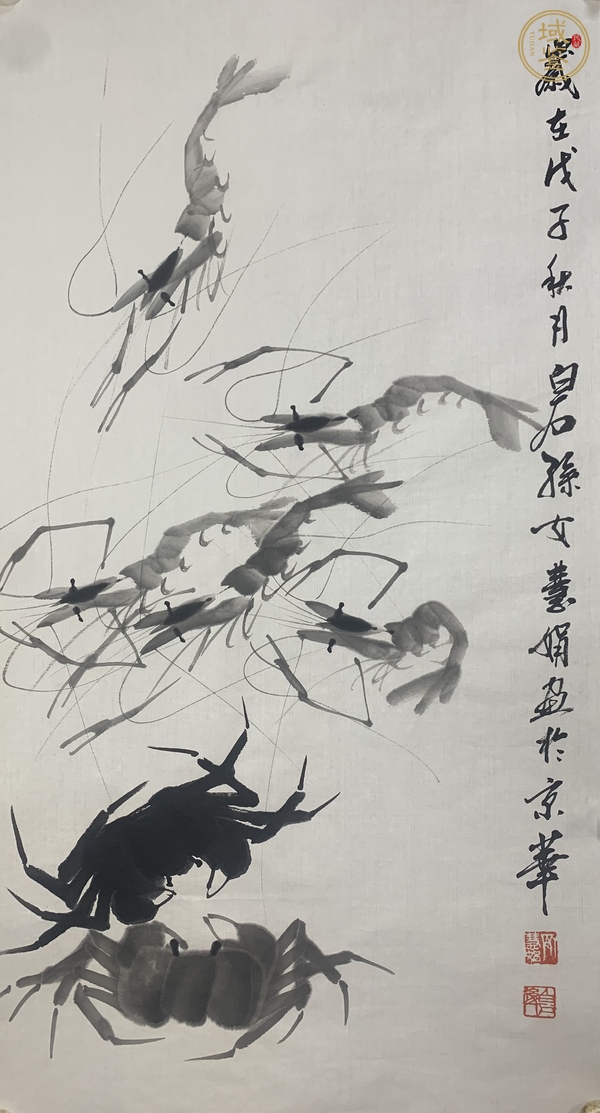 歲在戊子秋月白石孫女慧娟画於京華
域